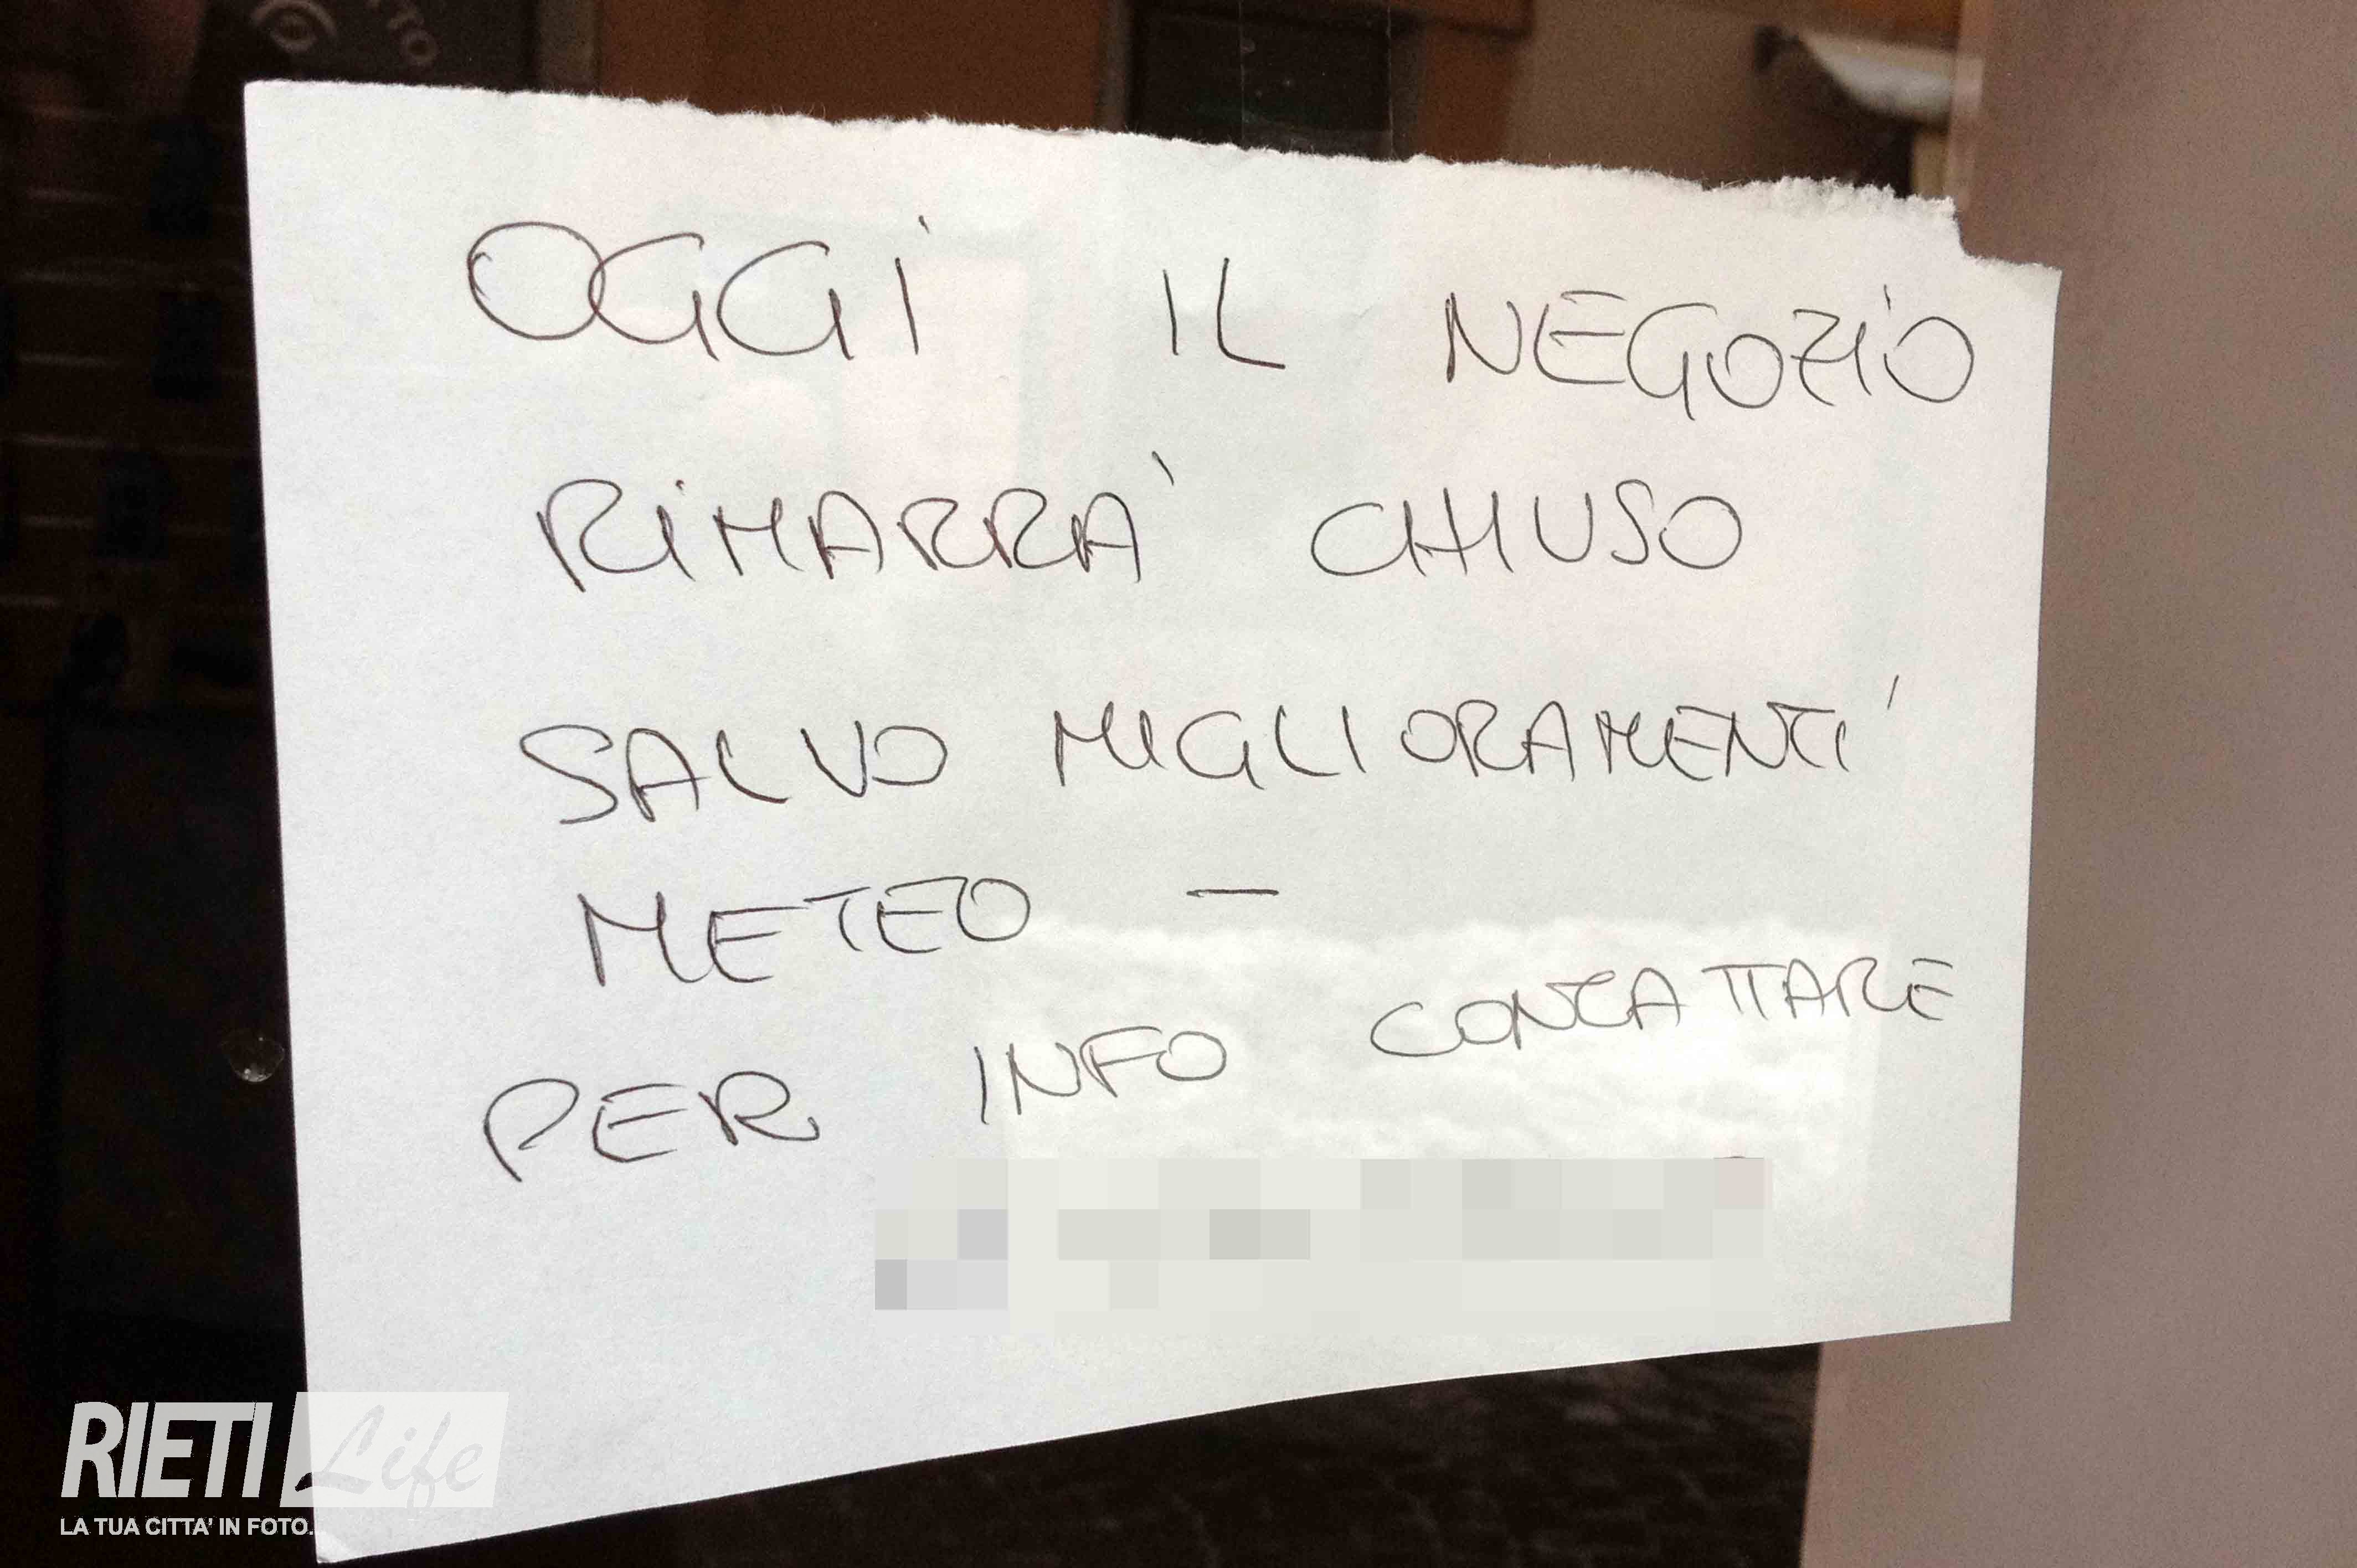 TTO
OGGI IL NEGOZIO
RIMARRA' CHIUSO
SALVO MIGLIORAMENTI
METEO –
PER INFO CONTATTARE
RIETI Life
LA TUA CITTA' IN FOTO.